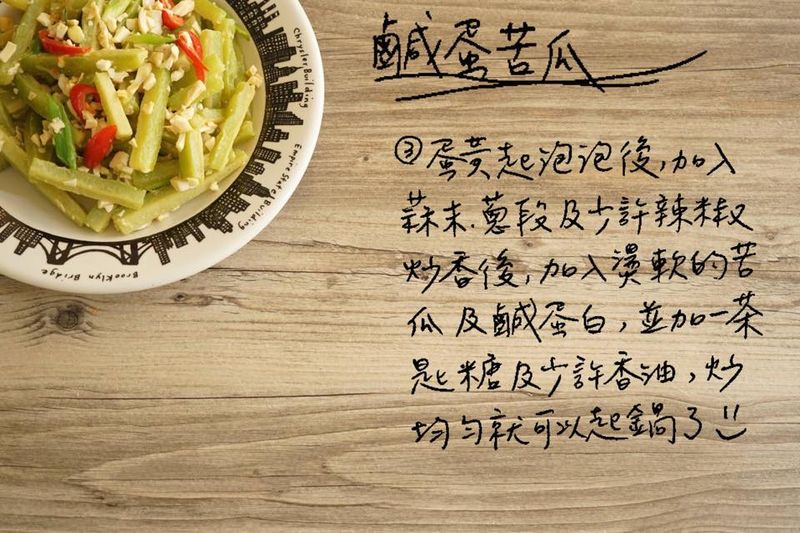 鹹蛋苦瓜
③蛋黃起泡泡後,加入
蒜末.蔥段及少許辣椒
炒香後,加入燙軟的苦
瓜及鹹蛋白,並加一茶
匙糖及少許香油,炒
均勻就可以起鍋了
Chrysler Building
Empire State Building
Brooklyn Bridge